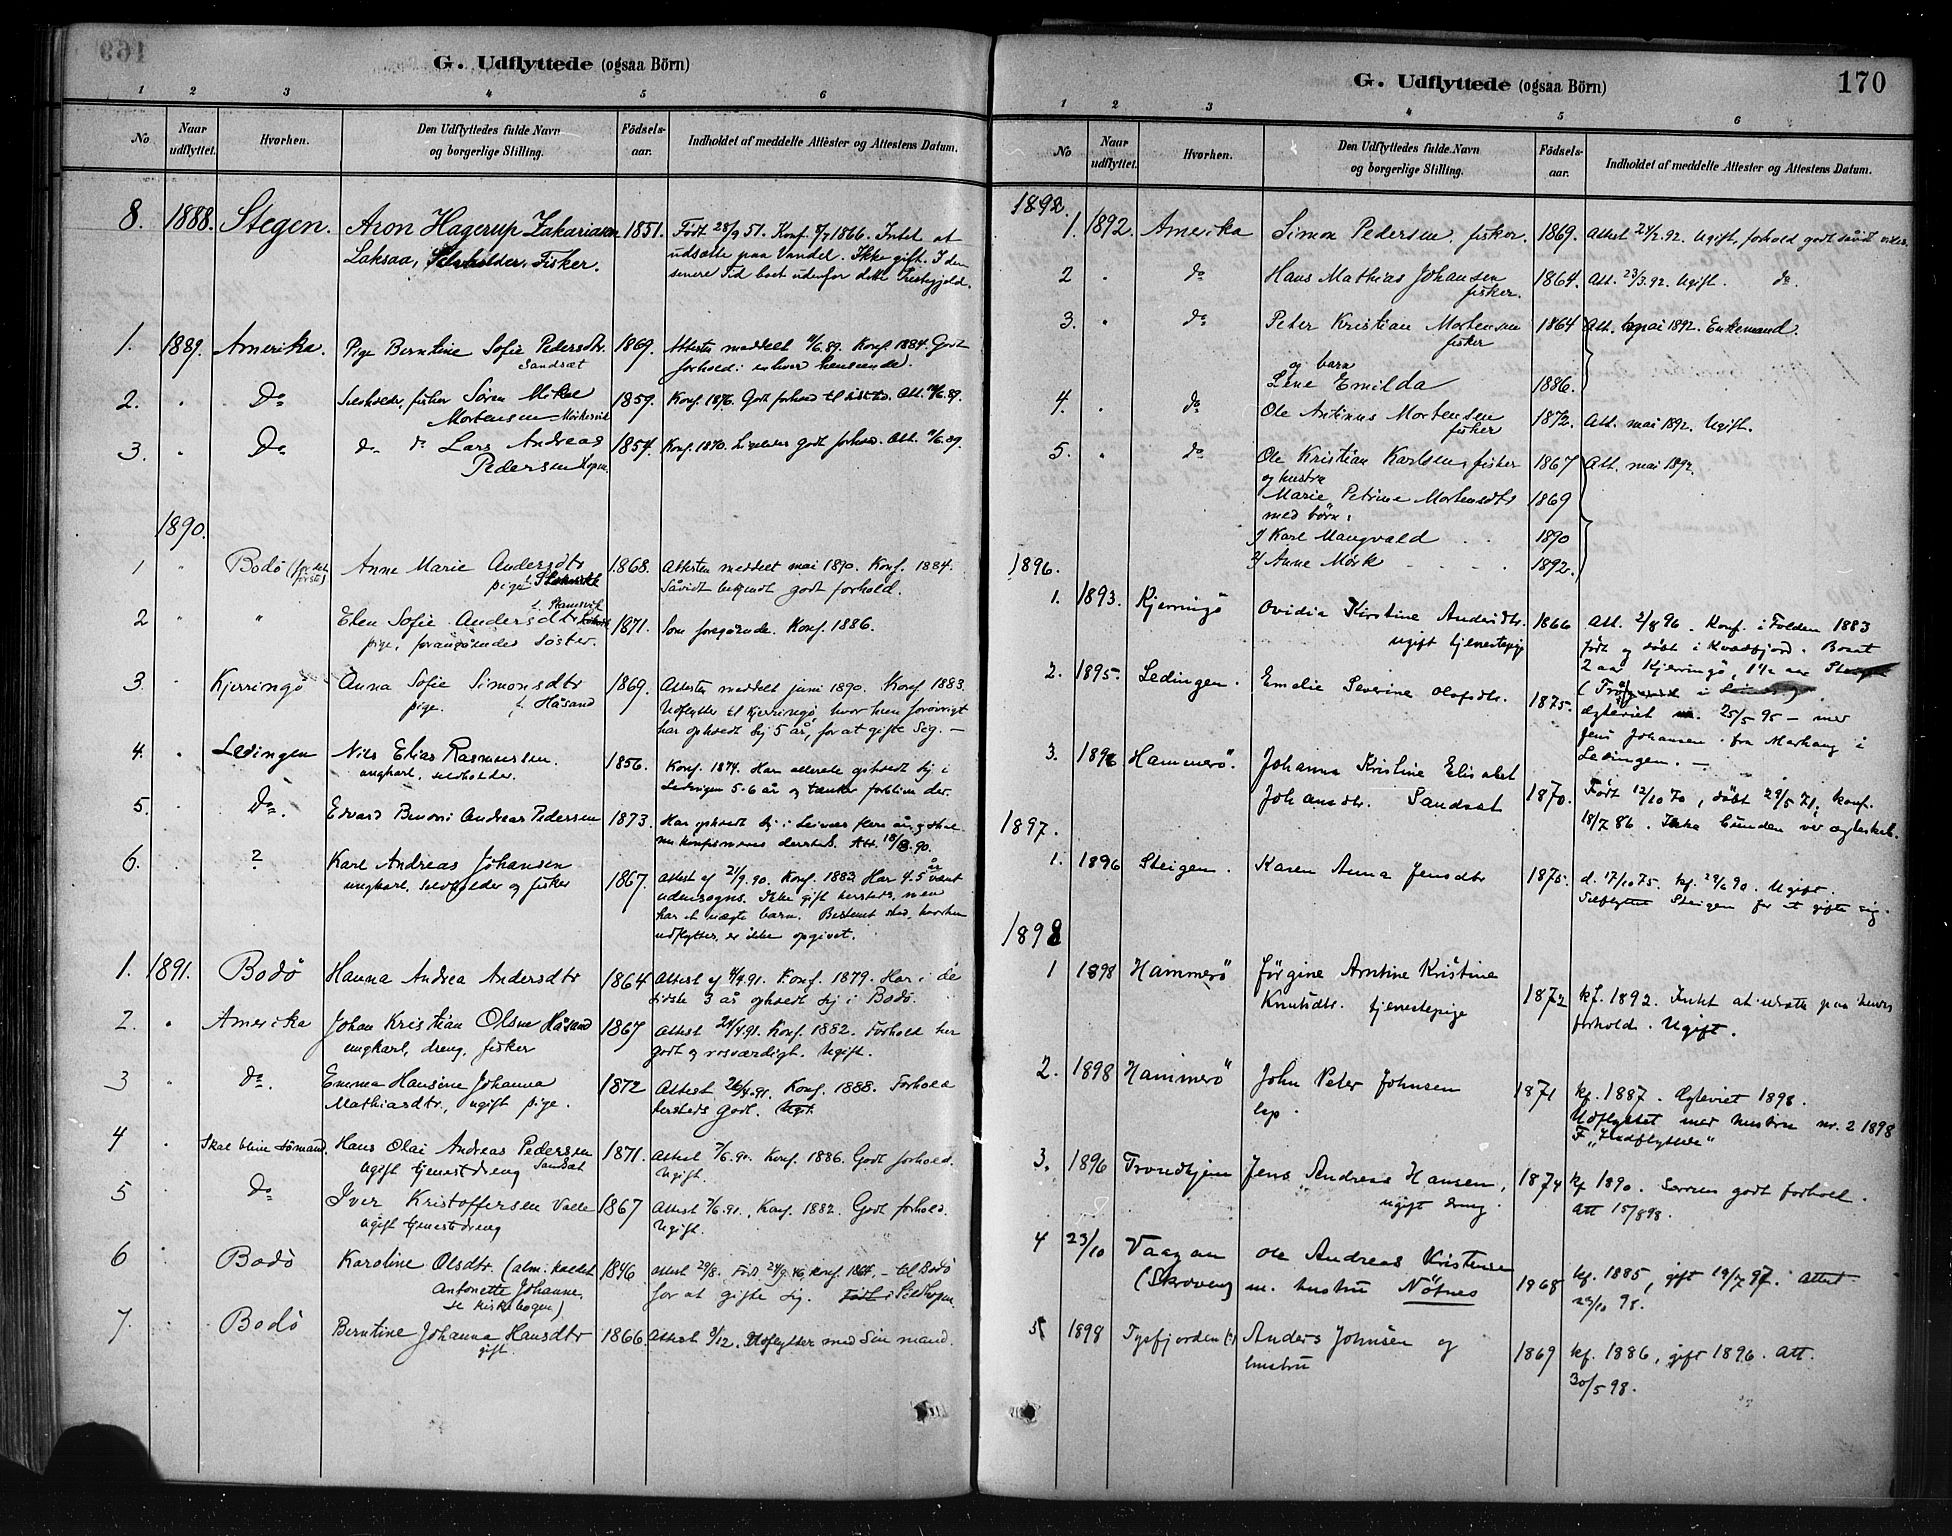 G. Udflyttede (ogsaa Börn)
1 2 3 4 5 6
No. Naar udflyttet. Hvorhen. Den Udflyttedes fulde Navn og borgerlige Stilling. Födsels-aar. Indholdet af meddelte Attester og Attestens Datum.
8. 1888. Stegen. Aron Hagerup Zakariasen 1851. Født 28/9 51. Konf. 8/7 1866. Intet at
Laksaa, Selvholder, Fisker. udsætte paa Vandel. Ikke gift. I den
senere Tid boet udenfor dette Prestegjeld.
1. 1889. Amerika. Pige Berntine Sofie Pedersdtr. 1869. Attester meddelt 11/6.89. Konf. 1884. Godt
Sandsæt forhold i enhver henseende.
2. " Do Selvholder, fisker Sören Mikal 1859. Konf. 1876. Godt forhold til sidst. Att. 11/6.89.
Mortensen Mörkesvik
3. " Do do do Lars Andreas 1854. Konf. 1870. Ligeledes godt forhold. Att. 11/6.89.
Pedersen Hopen
1890.
1 " Bodö (for det første) Anne Marie Andersdtr 1868. Attesten meddelt mai 1890. Konf. 1884.
pige Såvidt bekjendt godt forhold.
f. Stamsvik
2 " " Elen Sofie Andersdtr 1871. Som foregående. Konf. 1886.
pige, forangående søster.
3 " Kjerringö Anna Sofie Simonsdtr 1869. Attester meddelt juni 1890. Konf 1883.
pige. f. Håsand Udflytter til Kjerringö, hvor hun forövrigt
har opholdt sig 5 år, for at gifte sig. —
4. " Lødingen Nils Elias Rasmussen. 1856. Konf. 1874. Har allerede opholdt sig i
ungkarl, selvholder. Lødingen 5-6 år og tænker forblive der.
5. " Do. Edvard Benoni Andreas Pedersen 1873. Har opholdt sig i Leines flere år og skal
nu konfirmeres dersteds. Att. 18/8.90.
6. ? Karl Andreas Johansen 1867. Attest af 21/9.90. Konf. 1883 Har 4.5 år været
ungkarl, selvholder og fisker udensogns. Ikke gift hersteds, men
har et uægte barn. Bestemt sted, hvorhen
udflyttes, er ikke opgivet.
1. 1891. Bodö Hanna Andrea Andersdtr 1864 Attest af 4/9.91. Konf. 1879. Har i de
sidste 3 år opholdt sig i Bodö.
2. " Amerika Johan Kristian Olsen Håsand 1867 Attest 24/4.91. Konf. 1882. Forhold her
ungkarl, dreng, fisker godt og rosværdigt. Ugift.
3 " Do. Emma Hansine Johanna 1872 Attest 24/4.91. Konf. 1888. Forhold
Mathiasdtr, ugift pige. hersteds godt. Ugt.
4 . Skal blive sömand. Hans Olai Andreas Pedersen 1871. Attest 7/6.91. Konf. 1886. Godt forhold.
ugift tjenestdreng Sandsæt Ugift.
5 . Do Iver Kristoffersen Valle 1867 Attest 7/6.91. Konf. 1882. Godt forhold.
ugift tjenestdreng Ugift.
6 . Bodö Karoline Olsdtr. (alm. kaldet 1846 Attest 29/8. Född 24/9.46, konf. — til Bodö
Antonette Johanne, for at gifte sig.
se kirkebogen)
7. . Bodö Berntine Johanna Hansdtr 1866. Attest 9/12. Udflytter med sin mand.
gift.
G. Udflyttede (ogsaa Börn)
170
1 2 3 4 5 6
No Naar udflyttet. Hvorhen. Den Udflyttedes fulde Navn og borgerlige Stilling. Födsels-aar. Indholdet af meddelte Attester og Attestens Datum.
1892.
1. 1892. Amerika Simon Pedersen, fisker. 1869. Attest 24/2.92. Ugift, forhold godt såvidt vides.
2 . do Hans Mathias Johansen 1864. Att. 23/3.92. Ugift. do.
fisker.
3. " do Peter Kristian Mortensen 1864 Att. mai 1892. Enkemand.
fisker
og barn
Lene Emilda 1886.
4. . do Ole Antinus Mortensen 1872. Att. mai 1892. Ugift.
fisker
5. " do Ole Kristian Karlsen, fisker 1867 Att. mai 1892.
og hustru
Marie Petrine Mortensdtr 1869
med börn:
1) Karl Mangvald . . 1890
2) Anne Mörk . . . . 1892.
1896.
1. 1893. Kjerringö Ovidia Kirstine Andersdtr. 1866 Att. 2/8 96. Konf. i Folden 1883
ugift tjenestepige født og døbt i Kvædfjord. Bosat
2 aar Kjerringö, 1 1/2 aar
2. 1895. Lødingen. Emelie Severine Olofsdtr. 1875.
ægteviet 25/5 95 — med
Jens Johansen fra Markaug i
Lødingen. —
3. 1896 Hammerö. Johanna Kristine Elisabet 1870. Født 12/10 70, døbt 29/5 71, konf.
Johansdtr. Sandsæt 18/7 86. Ikke bunden ved ægteskab.
1897.
1. 1896 Steigen. Karen Anna Jensdtr 1875. d. 17/10 75. kf. 29/6 90. Ugift.
Tilflyttet Steigen for at gifte sig.
1898
1 1898 Hammerö Jörgine Arntine Kristine 1872 kf. 1892. Intet at udsætte paa hendes
Knutsdtr. tjenestepige forhold. Ugift.
2. 1898 Hammerö John Peter Johnsen 1871 kf. 1887. Ægteviet 1898.
lap. Udflyttet med hustru nr. 2 1898
F "Indflyttede"
3. 1896 Trondhjem Jens Andreas Hansen, 1874 kf 1890. Særens godt forhold.
ugift dreng. Att 15/8 98.
4 23/10 Vaagan Ole Andreas Kristensen 1868 kf. 1885, gift 19/7 97. Attest
(Skroven) m. hustru Nötnes 23/10 98.
5 1898 Tysfjorden (?) Anders Johnsen og 1869 kf. 1886, gift 1896. Att.
hustru 30/5 98.